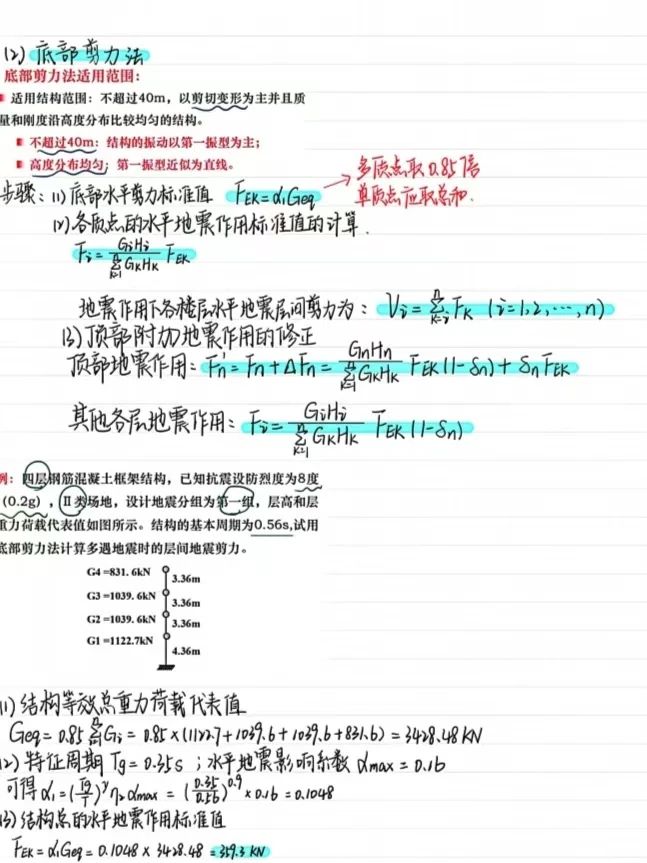 (2) 底部剪力法
底部剪力法适用范围:
适用结构范围:不超过40m,以剪切变形为主并且质
量和刚度沿高度分布比较均匀的结构。
不超过40m:结构的振动以第一振型为主;
高度分布均匀:第一振型近似为直线。
步骤:(1)底部水平剪力标准值 FEK=α1Geq → 多质点取0.85倍
单质点应取总和.
(2)各质点的水平地震作用标准值的计算.
Fi = GiHi / Σ(k=1→n) GKHK FEK
地震作用下各楼层水平地震层间剪力为: Vi = Σ(k=i→n) FK (i=1,2,…,n)
(3)顶部附加地震作用的修正
顶部地震作用: Fn' = Fn + ΔFn = GnHn / Σ(k=1→n) GKHK FEK(1-δn) + δnFEK
其他各层地震作用: Fi = GiHi / Σ(k=1→n) GKHK FEK(1-δn)
例:四层钢筋混凝土框架结构,已知抗震设防烈度为8度
(0.2g),Ⅱ类场地,设计地震分组为第一组,层高和层
重力荷载代表值如图所示。结构的基本周期为0.56s,试用
底部剪力法计算多遇地震时的层间地震剪力。
G4 =831.6kN
3.36m
G3 =1039.6kN
3.36m
G2 =1039.6kN
3.36m
G1 =1122.7kN
4.36m
(1)结构等效总重力荷载代表值
Geq = 0.85 Σ Gi = 0.85×(1122.7+1039.6+1039.6+831.6) = 3428.48 KN
(2)特征周期 Tg = 0.35s ; 水平地震影响系数 αmax = 0.16
可得 α1 = (Tg/T)^γ η2 αmax = (0.35/0.56)^0.9 × 0.16 = 0.1048
(3)结构总的水平地震作用标准值
FEK = α1Geq = 0.1048 × 3428.48 = 359.3 KN